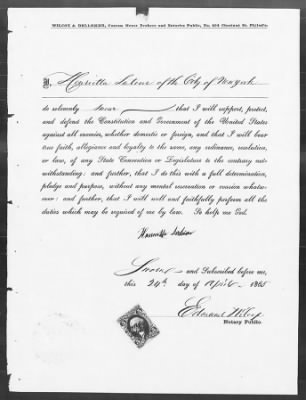 WILCOX & DELLEKER, Custom House Brokers and Notaries Public, No. 404 Chestnut St. Philad'a.
I, Henrietta of the City of New York
do solemnly swear that I will support, protect,
and defend the Constitution and Government of the United States
against all enemies, whether domestic or foreign, and that I will bear
true faith, allegiance and loyalty to the same, any ordinance, resolution
or law, of any State Convention or Legislature to the contrary not-
withstanding: and further, that I do this with a full determination,
pledge and purpose, without any mental reservation or evasion whatso-
ever: and further, that I will well and faithfully perform all the
duties which may be required of me by law. So help me God.
Henrietta
Sworn and Subscribed before me,
this 24th day of April 1865
Edmund Wilcox
Notary Public.